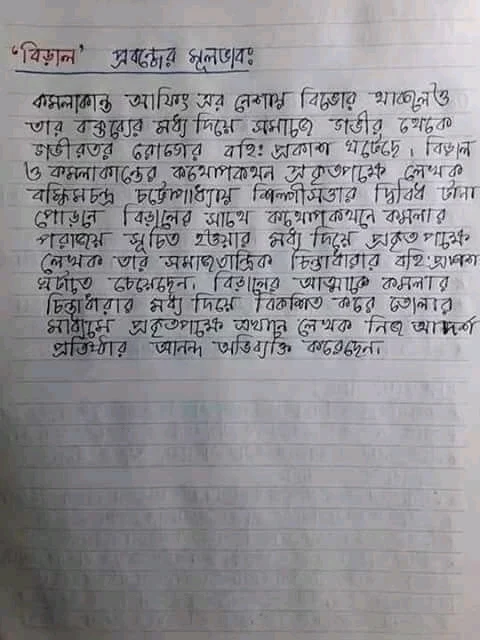 'বিড়াল' প্রবন্ধের মূলভাব:
কমলাকান্ত আফিং এর নেশায় বিভোর থাকলেও
তার বক্তব্যের মধ্য দিয়ে সমাজে গভীর থেকে
গভীরতর রোগের বহি: প্রকাশ ঘটেছে। বিড়াল
ও কমলাকান্তের কথোপকথন প্রকৃতপক্ষে লেখক
বঙ্কিমচন্দ্র চট্টোপাধ্যায় শিল্পীসত্তার দ্বিবিধ টানা
পোড়নে বিড়ালের সাথে কথোপকথনে কমলার
পরাজয় সূচিত হওয়ার মধ্য দিয়ে প্রকৃত পক্ষে
লেখক তার সমাজতান্ত্রিক চিন্তাধারার বহি:প্রকাশ
ঘটাতে চেয়েছেন। বিড়ালের আত্মাকে কমলার
চিন্তাধারার মধ্য দিয়ে বিকশিত করে তোলার
মাধ্যমে প্রকৃতপক্ষে এখানে লেখক নিজ আদর্শ
প্রতিষ্ঠার আনন্দ অভিব্যক্তি করেছেন।